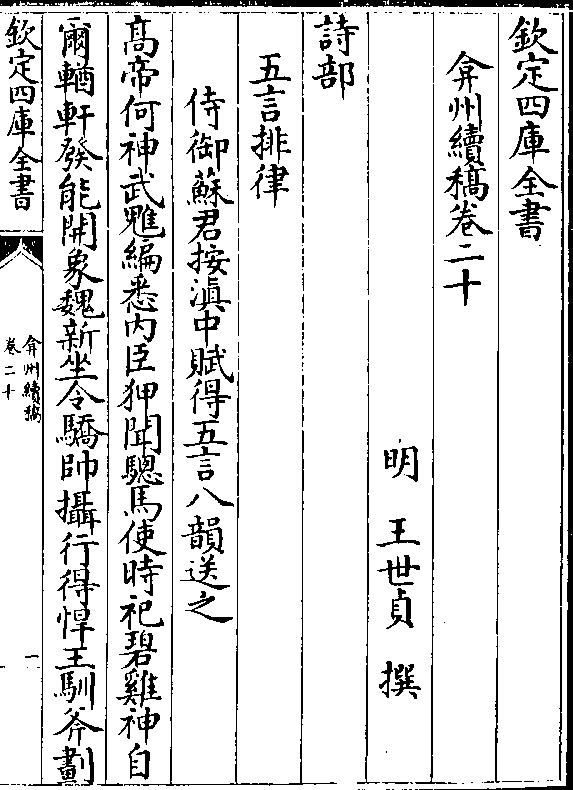 欽定四庫全書
弇州續稿卷二十
明 王世貞 撰
詩部
五言排律
侍御蘇君按滇中賦得五言八韻送之
高帝何神武雕編悉内臣狎聞驄馬使時祀碧雞神自
爾輶軒發能開象魏新坐令驕帥攝行得悍王馴斧劃
欽定四庫全書
弇州續稿
卷二十
一